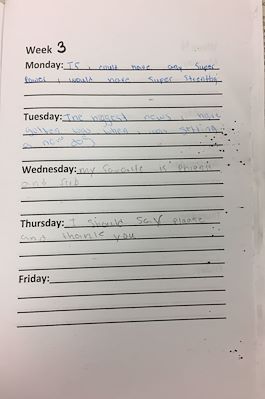 Week 3
Monday: If i could have any super
Power i would have super strength
Tuesday: The biggest news i have
gotten was when i was getting
a new dog
Wednesday: my favorite is
and
Thursday: I should say please
and thank you
Friday: